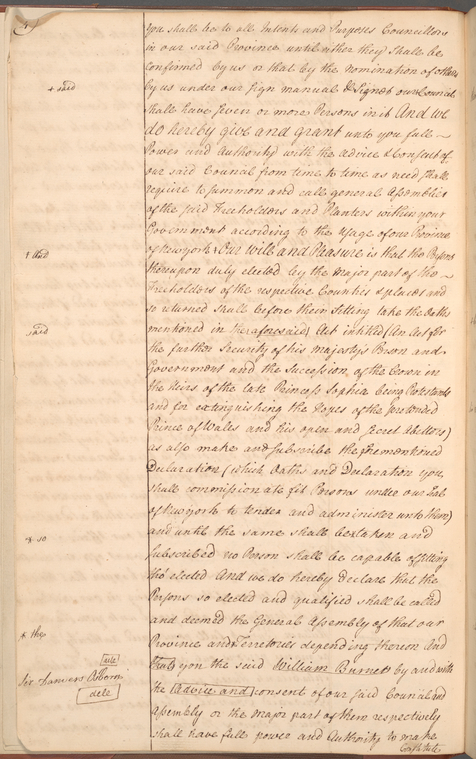 you shall be to all Intents and Purposes Councillors
in our said Province until either they shall be
confirmed by us or that by the nomination of others
+ said
by us under our Sign manual & Signet our Council
shall have seven or more Persons in it And we
do hereby give and grant unto you full
Power and Authority with the advice & Consent of
our said Council from time to time as need shall
require to summon and call general Assemblies
of the said Freeholders and Planters within your
Government according to the Usage of our Province
+ And
of New york & Our will and Pleasure is that the Persons
thereupon duly elected by the major part of the
Freeholders of the respective Counties & places and
so returned shall before their Sitting take the Oaths
said
mentioned in the aforesaid Act intitled (An Act for
the further Security of his majestys Person and
Government and the Succession of the Crown in
the Heirs of the late Princess Sophia being Protestants
and for extinguishing the Hopes of the pretended
Prince of Wales and his open and secret Abettors)
as also make and subscribe the forementioned
Declaration (which Oaths and Declaration you
shall commissionate fit Persons under our Seal
of New york to tender and administer unto them)
x so
and until the same shall be taken and
subscribed no Person shall be capable of sitting
tho' elected And we do hereby declare that the
Persons so elected and qualified shall be called
and deemed the General Assembly of that our
x the
Province and Territories depending thereon And
that you the said William Burnet by and with
Sir Danvers Osborn
dele
the advice and consent of our said Council and
Assembly or the major part of them respectively
shall have full power and Authority to make
Constitute